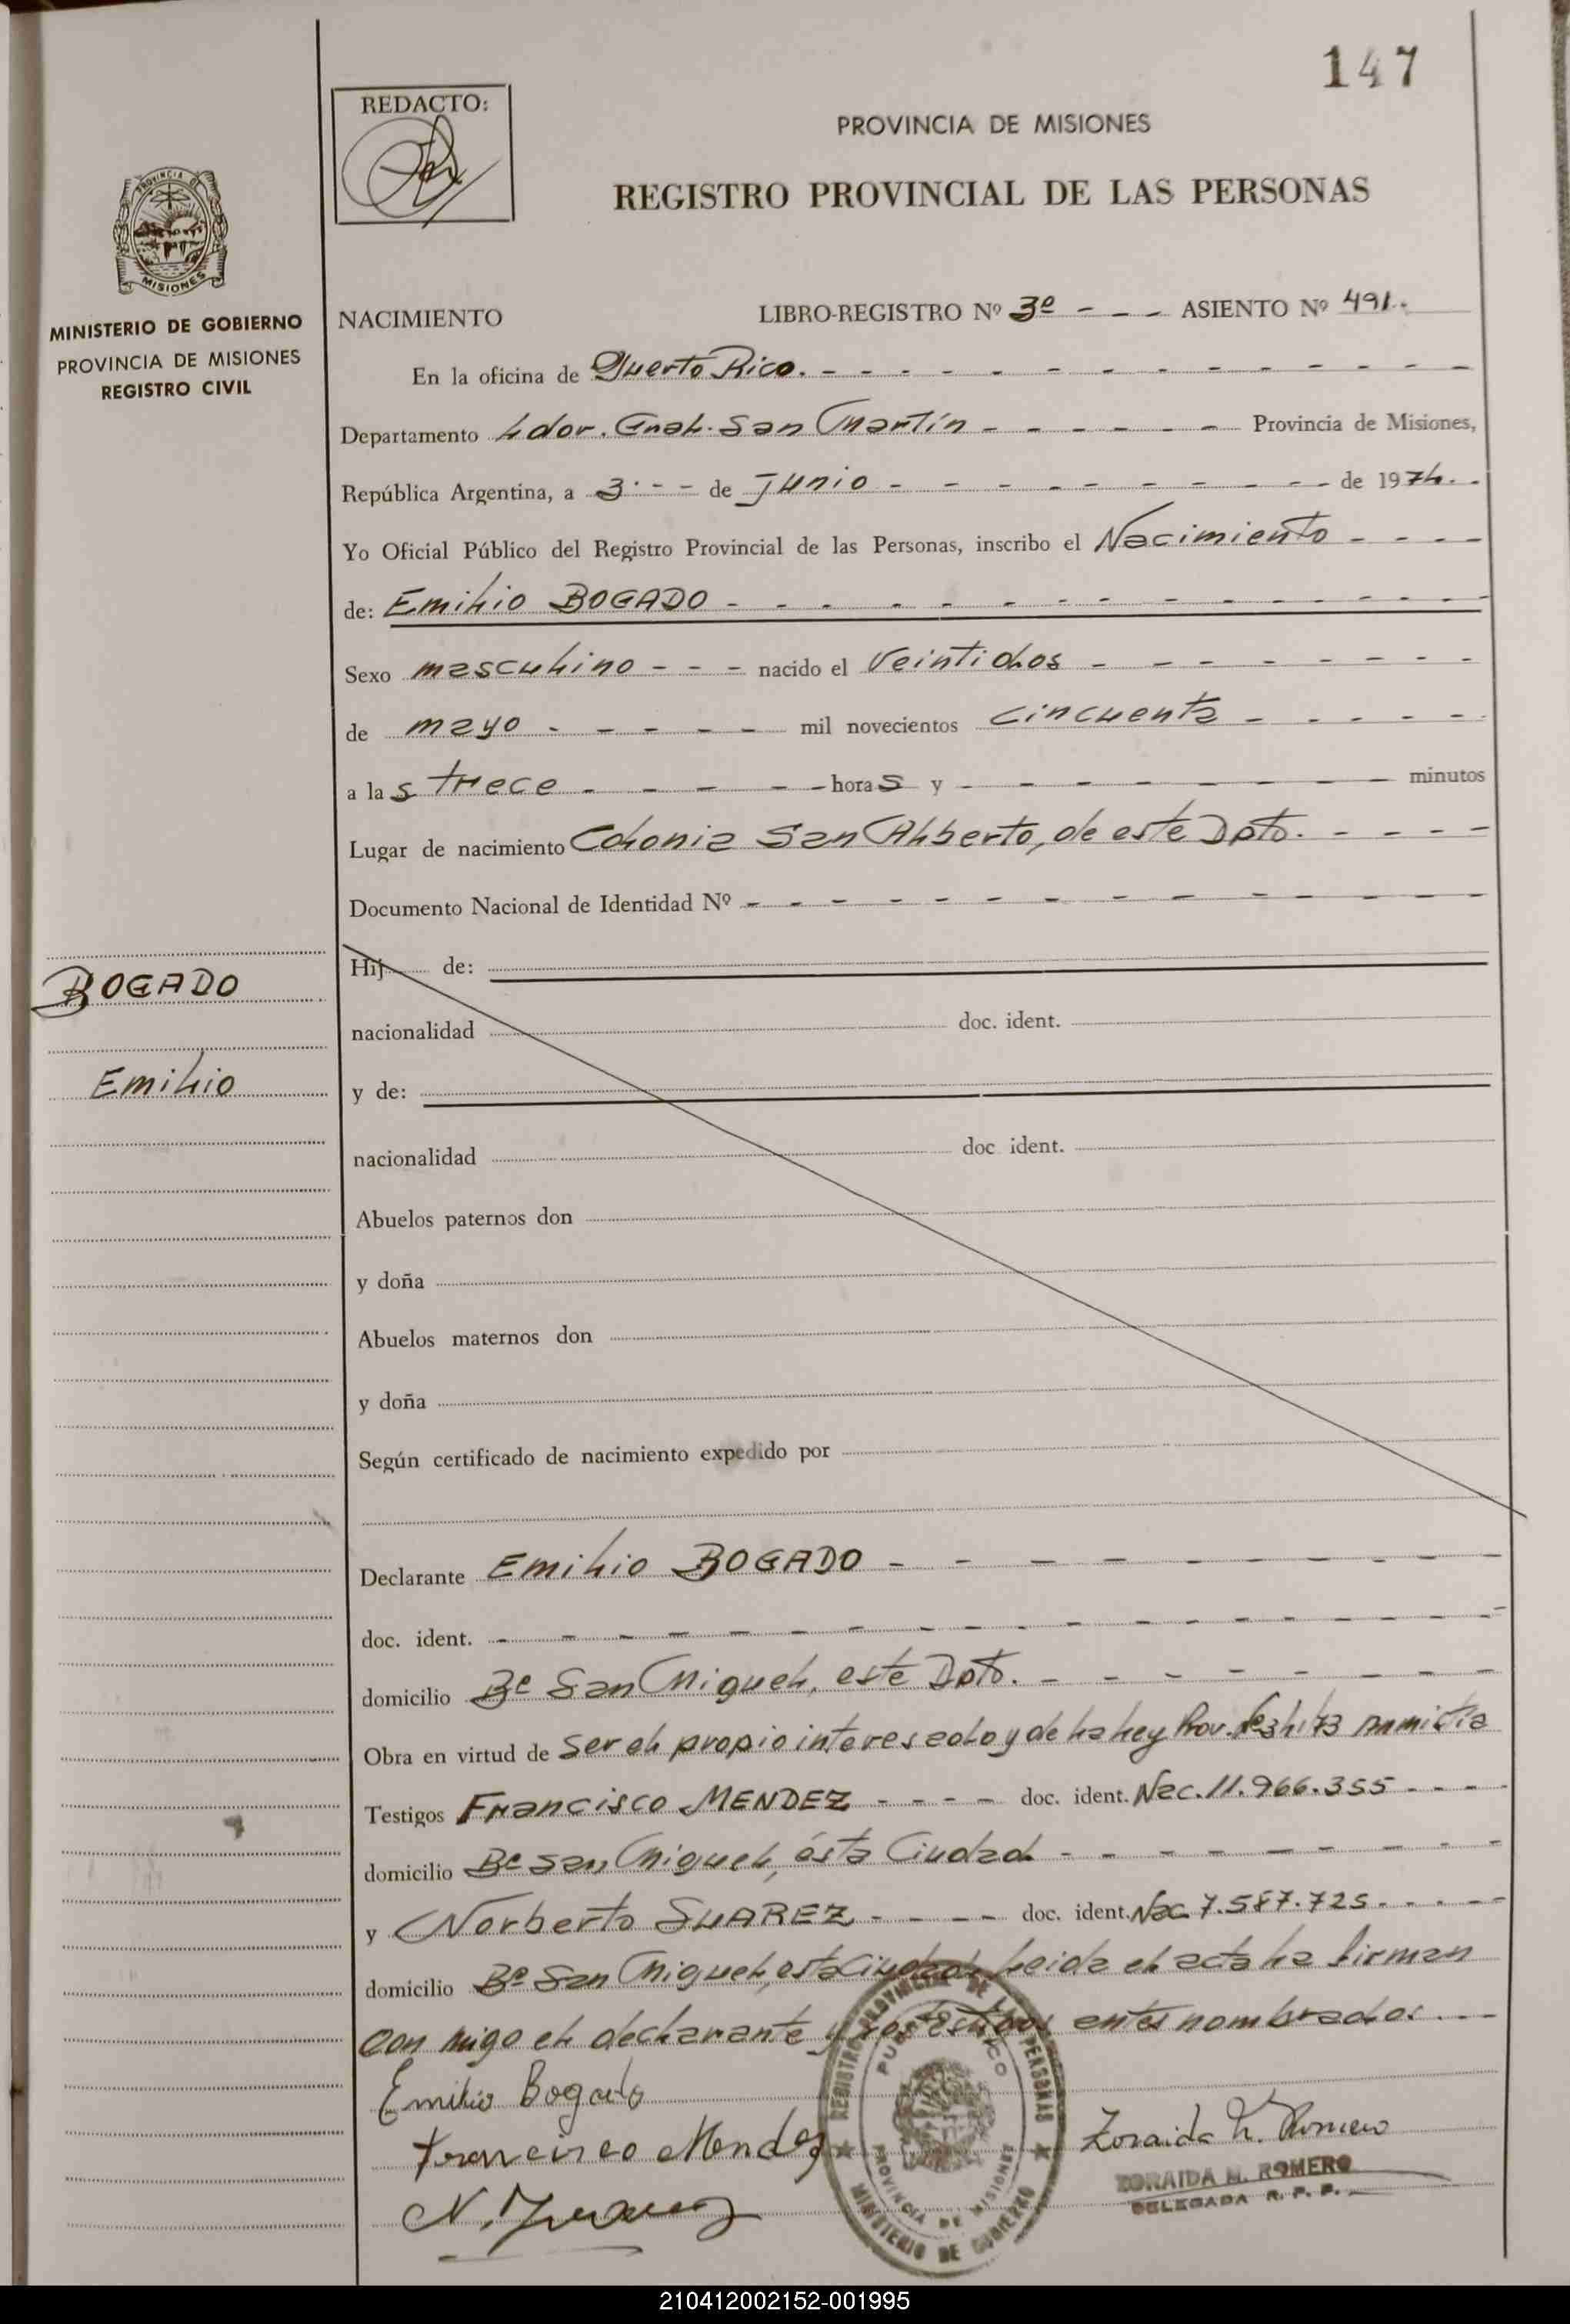 147
REDACTO:
PROVINCIA DE MISIONES
REGISTRO PROVINCIAL DE LAS PERSONAS
PROVINCIA DE
MISIONES
MINISTERIO DE GOBIERNO
PROVINCIA DE MISIONES
REGISTRO CIVIL
NACIMIENTO LIBRO-REGISTRO Nº 3º - - - ASIENTO Nº 491.
En la oficina de Puerto Rico. - - - - - - - - - - - -
Departamento Ldor. Gral. San Martín - - - - - - Provincia de Misiones,
República Argentina, a 3 - - de Junio - - - - - - - - - de 1974. -
Yo Oficial Público del Registro Provincial de las Personas, inscribo el Nacimiento - - - -
de: Emilio BOGADO - - - - - - - - - - - - -
Sexo masculino - - - nacido el Veintidos - - - - - - - -
de mayo - - - - - mil novecientos cincuenta - - - - -
a las trece - - - - - horas y - - - - - - - - minutos
Lugar de nacimiento Colonia San Alberto, de este Dpto. - - - -
Documento Nacional de Identidad Nº - - - - - - - - - - - - -
Hij de:
nacionalidad doc. ident.
BOGADO
y de:
Emilio
nacionalidad doc ident.
Abuelos paternos don
y doña
Abuelos maternos don
y doña
Según certificado de nacimiento expedido por
Declarante Emilio BOGADO - - - - - - - -
doc. ident. - - - - - - - - - - - - - - -
domicilio Bº San Miguel, este Dpto. - - - - - - - -
Obra en virtud de ser el propio interesado y de la ley Prov. Amnistía
Testigos Francisco MENDEZ - - - - doc. ident. Nac. 11.966.355 - - -
domicilio Bº San Miguel, ésta Ciudad - - - - - - - -
y Norberto SUAREZ - - - - doc. ident. Nac 7.587.725 - - - -
domicilio Bº San Miguel, esta Ciudad. Leida el acta la firman
con migo el declarante y los testigos antes nombrados. - -
Emilio Bogado
Francisco Mendez
N. Suarez
REGISTRO PROVINCIAL DE LAS PERSONAS
MINISTERIO DE GOBIERNO
PROVINCIA DE MISIONES
Zoraida N. Romero
ZORAIDA N. ROMERO
DELEGADA R. P. P.
210412002152-001995